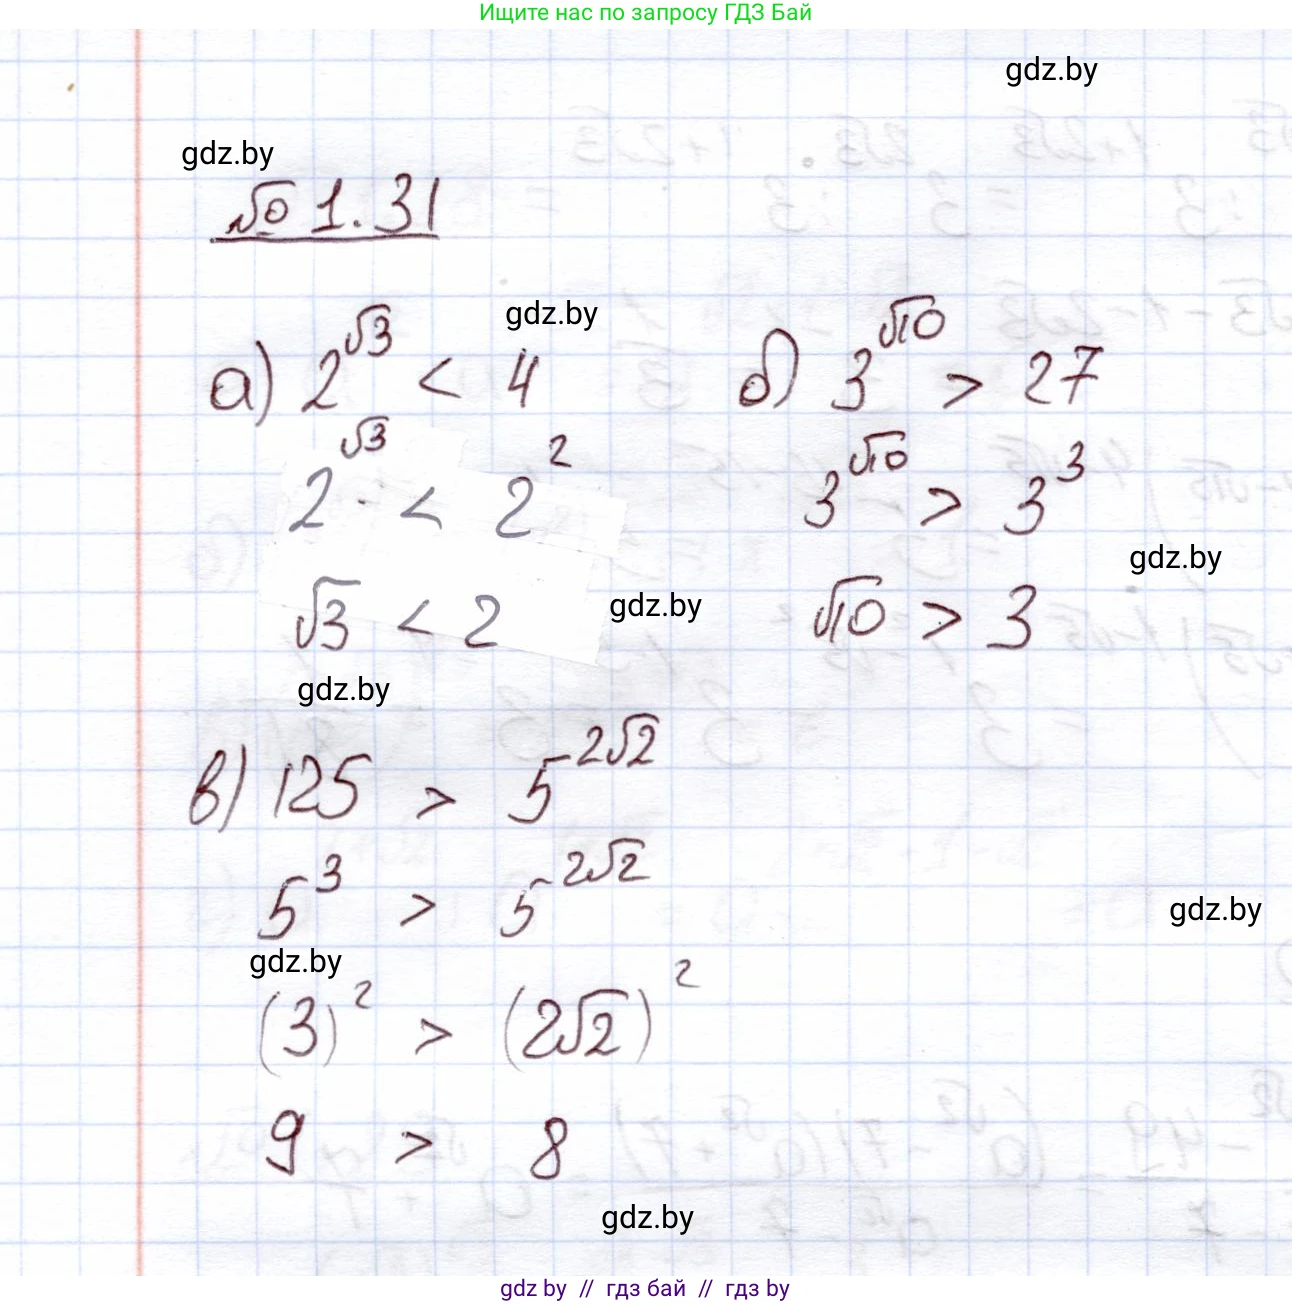 Ищите нас по запросу ГДЗ Бай
gdz.by
gdz.by
№ 1.31
gdz.by
а) 2^√3 < 4
2^√3 < 2^2
√3 < 2
gdz.by
gdz.by
б) 3^√10 > 27
3^√10 > 3^3
gdz.by
√10 > 3
в) 125 > 5^2√2
5^3 > 5^2√2
gdz.by
gdz.by
(3)^2 > (2√2)^2
9 > 8
gdz.by
gdz by // гдз бай // гдз by